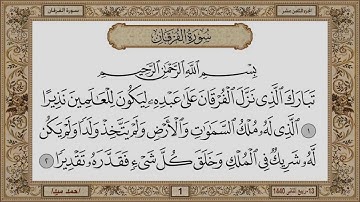 سورة الفرقان
الجزء الثامن عشر
سُورَةُ الفُرْقَان
بِسْمِ اللَّهِ الرَّحْمَٰنِ الرَّحِيمِ
تَبَارَكَ الَّذِي نَزَّلَ الْفُرْقَانَ عَلَىٰ عَبْدِهِ لِيَكُونَ لِلْعَالَمِينَ نَذِيرًا
١ الَّذِي لَهُ مُلْكُ السَّمَاوَاتِ وَالْأَرْضِ وَلَمْ يَتَّخِذْ وَلَدًا وَلَمْ يَكُن
لَّهُ شَرِيكٌ فِي الْمُلْكِ وَخَلَقَ كُلَّ شَيْءٍ فَقَدَّرَهُ تَقْدِيرًا ٢
13-ربيع الثاني-1440
1
احمد سينا